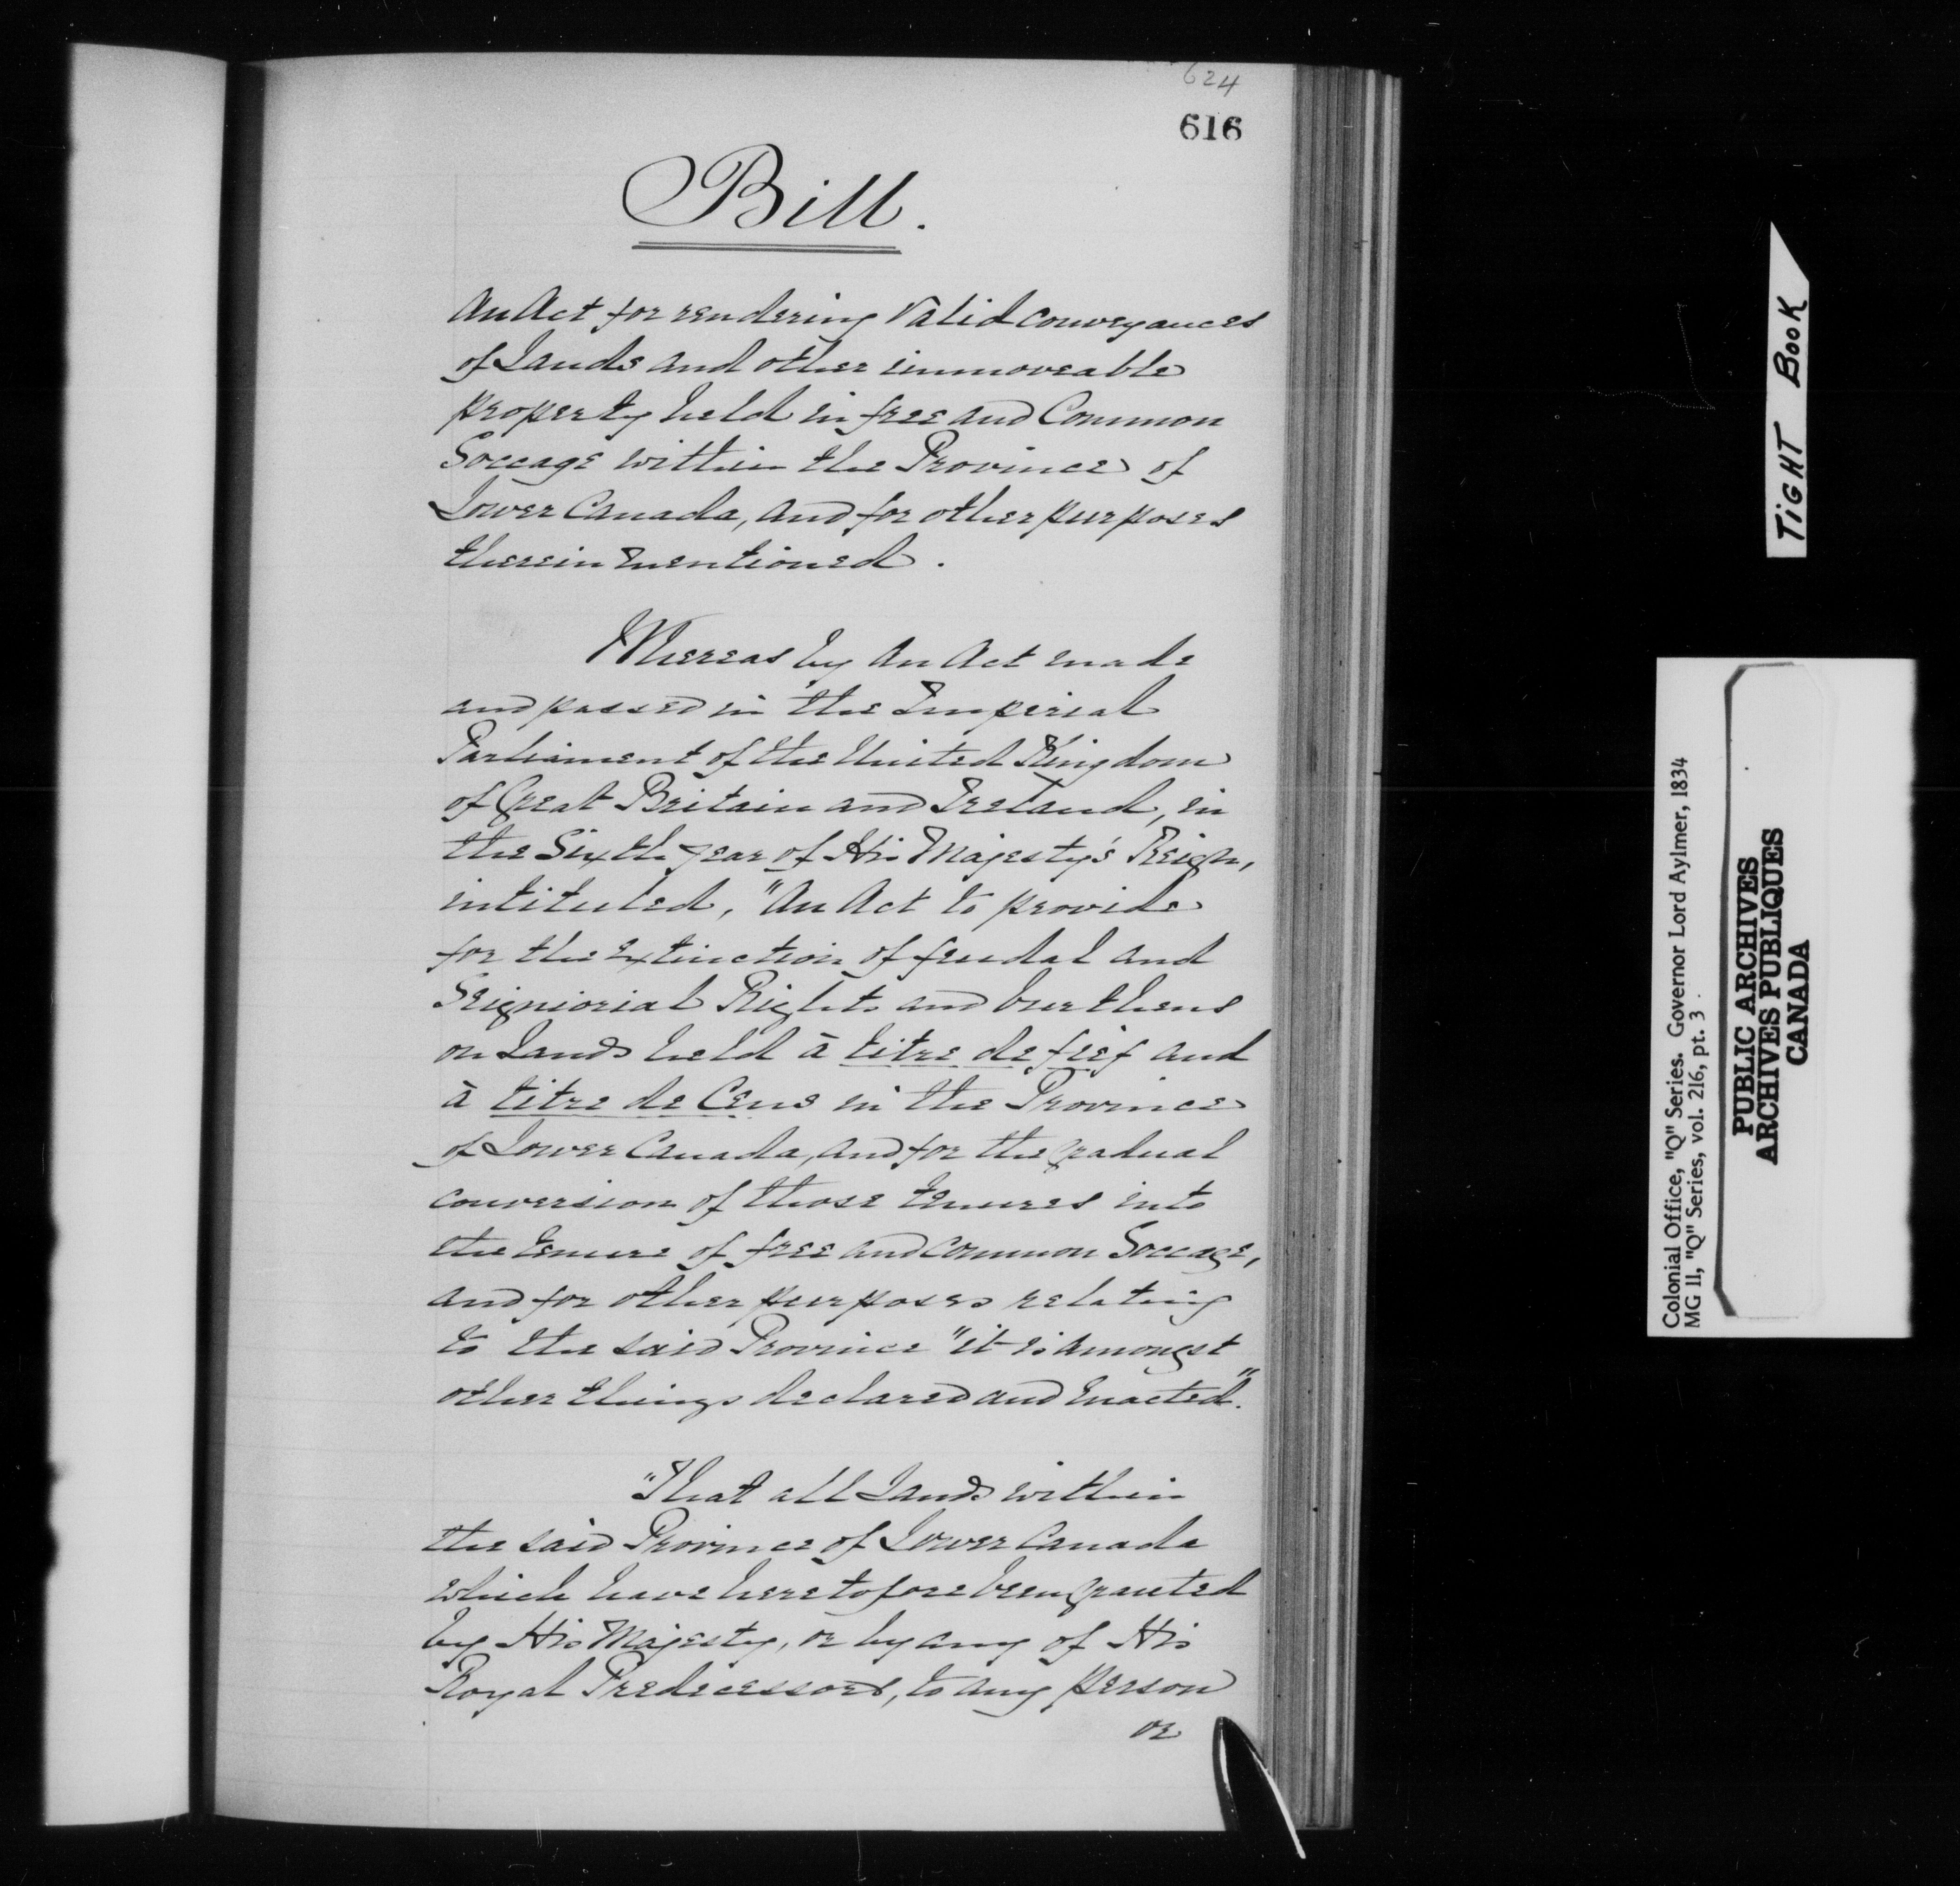 624
616
Bill.
An Act for rendering Valid conveyances
of Lands and other immoveable
property held in free and Common
Soccage within the Province of
Lower Canada, and for other purposes
therein mentioned.
Whereas by An Act made
and passed in the Imperial
Parliament of the United Kingdom
of Great Britain and Ireland, in
the Sixth year of His Majesty's Reign,
intituled, "An Act to provide
for the extinction of feudal and
Seigniorial Rights and burthens
on Lands held à titre de fief and
à titre de Cens in the Province
of Lower Canada, and for the gradual
conversion of those tenures into
the tenure of free and common Soccage,
and for other purposes relating
to the said Province "it is amongst
other things declared and enacted".
"That all Lands within
the said Province of Lower Canada
which have heretofore been granted
by His Majesty, or by any of His
Royal Predecessors, to any person
or
TIGHT BOOK
Colonial Office, "Q" Series. Governor Lord Aylmer, 1834
MG 11, "Q" Series, vol. 216, pt. 3.
PUBLIC ARCHIVES
ARCHIVES PUBLIQUES
CANADA